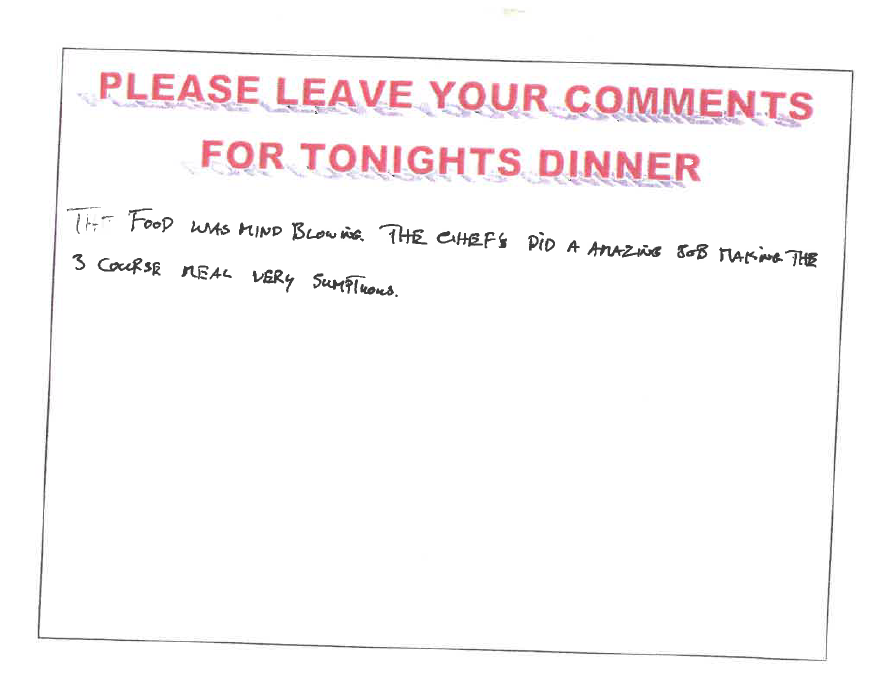 PLEASE LEAVE YOUR COMMENTS
FOR TONIGHTS DINNER
THE FOOD WAS MIND BLOWING. THE CHEF'S DID A AMAZING JOB MAKING THE
3 COURSE MEAL VERY SUMPTUOUS.